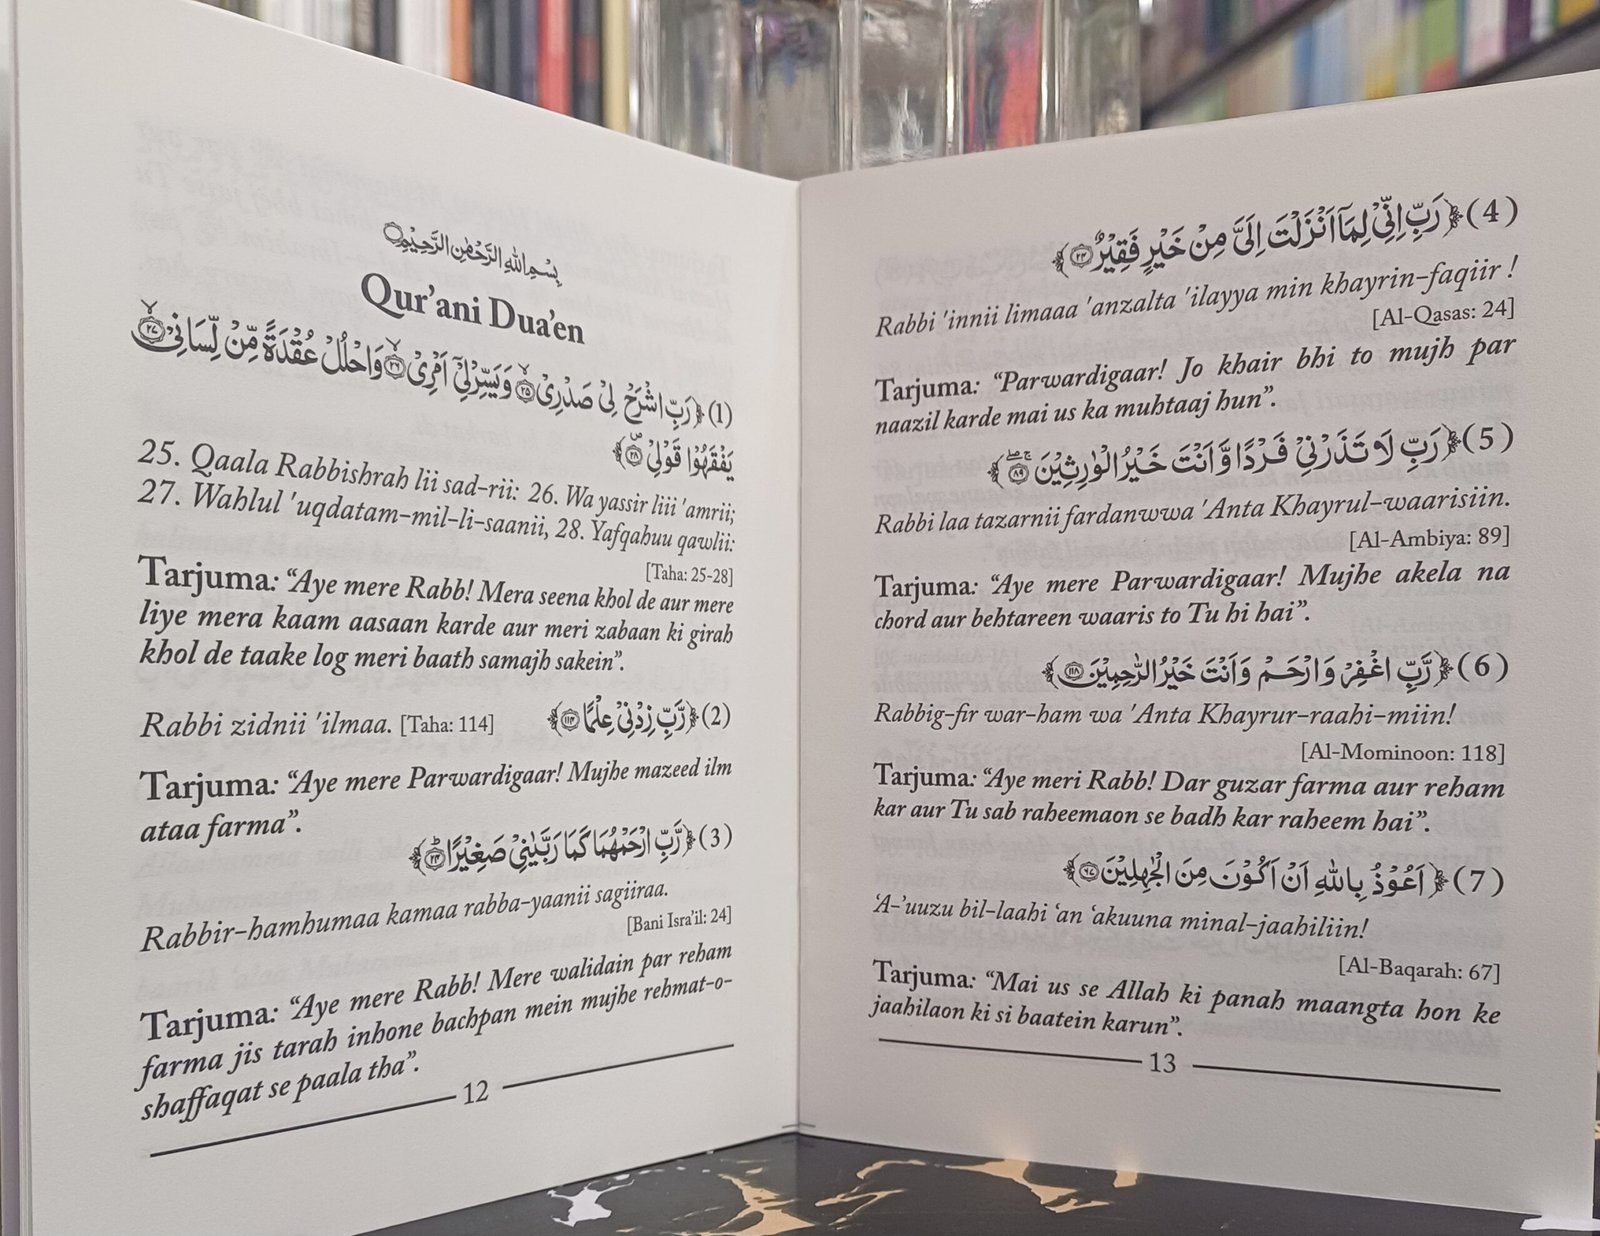 بِسْمِ اللّٰهِ الرَّحْمٰنِ الرَّحِيْمِ
Qur'ani Dua'en
(1) ﴿رَبِّ اشْرَحْ لِيْ صَدْرِيْ ۝٢٥ وَيَسِّرْ لِيْٓ اَمْرِيْ ۝٢٦ وَاحْلُلْ عُقْدَةً مِّنْ لِّسَانِيْ ۝٢٧
يَفْقَهُوْا قَوْلِيْ ۝٢٨﴾
25. Qaala Rabbishrah lii sad-rii: 26. Wa yassir liii 'amrii;
27. Wahlul 'uqdatam-mil-li-saanii, 28. Yafqahuu qawlii:
[Taha: 25-28]
Tarjuma: “Aye mere Rabb! Mera seena khol de aur mere
liye mera kaam aasaan karde aur meri zabaan ki girah
khol de taake log meri baath samajh sakein”.
(2) ﴿رَّبِّ زِدْنِيْ عِلْمًا ۝١١٤﴾
Rabbi zidnii 'ilmaa. [Taha: 114]
Tarjuma: “Aye mere Parwardigaar! Mujhe mazeed ilm
ataa farma”.
(3) ﴿رَّبِّ ارْحَمْهُمَا كَمَا رَبَّيٰنِيْ صَغِيْرًا ۝٢٤﴾
Rabbir-hamhumaa kamaa rabba-yaanii sagiiraa.
[Bani Isra'il: 24]
Tarjuma: “Aye mere Rabb! Mere walidain par reham
farma jis tarah inhone bachpan mein mujhe rehmat-o-
shaffaqat se paala tha”.
12
(4) ﴿رَبِّ اِنِّيْ لِمَآ اَنْزَلْتَ اِلَيَّ مِنْ خَيْرٍ فَقِيْرٌ ۝٢٤﴾
Rabbi 'innii limaaa 'anzalta 'ilayya min khayrin-faqiir !
[Al-Qasas: 24]
Tarjuma: “Parwardigaar! Jo khair bhi to mujh par
naazil karde mai us ka muhtaaj hun”.
(5) ﴿رَبِّ لَا تَذَرْنِيْ فَرْدًا وَّاَنْتَ خَيْرُ الْوٰرِثِيْنَ ۝٨٩﴾
Rabbi laa tazarnii fardanwwa 'Anta Khayrul-waarisiin.
[Al-Ambiya: 89]
Tarjuma: “Aye mere Parwardigaar! Mujhe akela na
chord aur behtareen waaris to Tu hi hai”.
(6) ﴿رَّبِّ اغْفِرْ وَارْحَمْ وَاَنْتَ خَيْرُ الرّٰحِمِيْنَ ۝١١٨﴾
Rabbig-fir war-ham wa 'Anta Khayrur-raahi-miin!
[Al-Mominoon: 118]
Tarjuma: “Aye meri Rabb! Dar guzar farma aur reham
kar aur Tu sab raheemaon se badh kar raheem hai”.
(7) ﴿اَعُوْذُ بِاللّٰهِ اَنْ اَكُوْنَ مِنَ الْجٰهِلِيْنَ ۝٦٧﴾
‘A-’uuzu bil-laahi ‘an ‘akuuna minal-jaahiliin!
[Al-Baqarah: 67]
Tarjuma: “Mai us se Allah ki panah maangta hon ke
jaahilaon ki si baatein karun”.
13